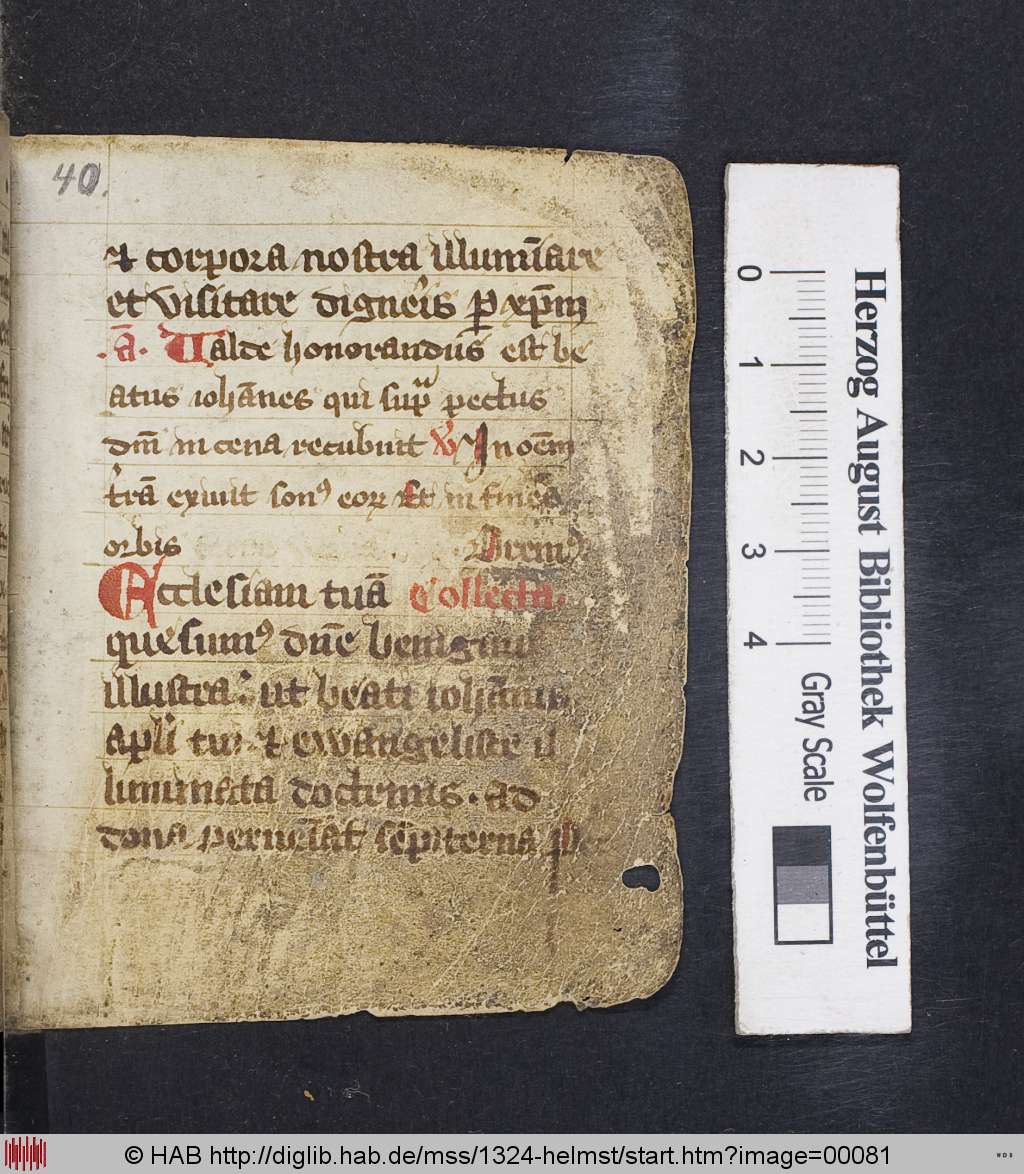 40.
⁊ corpora nostra illumīare
et visitare digneris ꝑ xp̄m
.a̅. Valde honorandus est be
atus ioh̄anes qui supᵃ pectus
dn̄i in cena recubuit ℣ In oēm
t̄rā exiuit sonꝰ eoꝝ Et in fines
orbis Oremꝰ
Ecclesiam tuā Collecta.
quesumꝰ dn̄e benignus
illustra: ut beati ioh̄annis
apl̄i tui ⁊ ewangeliste il
luminata doctrinis. ad
dona perueniat semp̄iterna P
0 1 2 3 4
Gray Scale
Herzog August Bibliothek Wolfenbüttel
© HAB http://diglib.hab.de/mss/1324-helmst/start.htm?image=00081